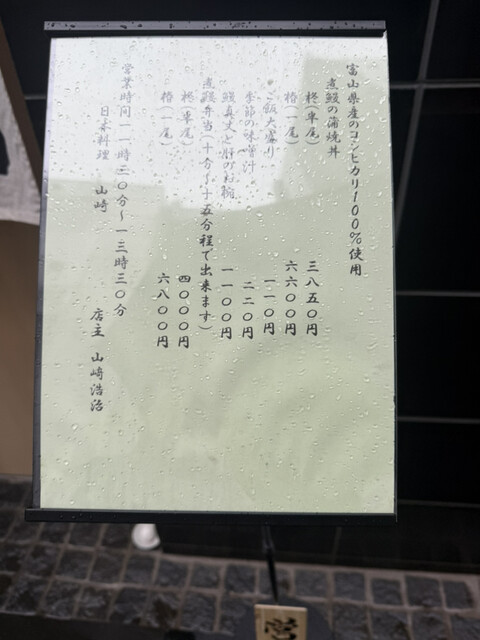 富山県産のコシヒカリ100%使用
煮鰻の蒲焼丼
柊(半尾) 三八五〇円
椿(一尾) 六六〇〇円
ご飯大盛り 一一〇円
季節の味噌汁 二二〇円
鰻真丈と肝のお椀 一一〇〇円
煮鰻弁当(十分〜十五分程で出来ます)
柊(半尾) 四〇〇〇円
椿(一尾) 六八〇〇円
営業時間 一一時三〇分〜一三時三〇分
日本料理 山崎
店主 山崎浩治
営